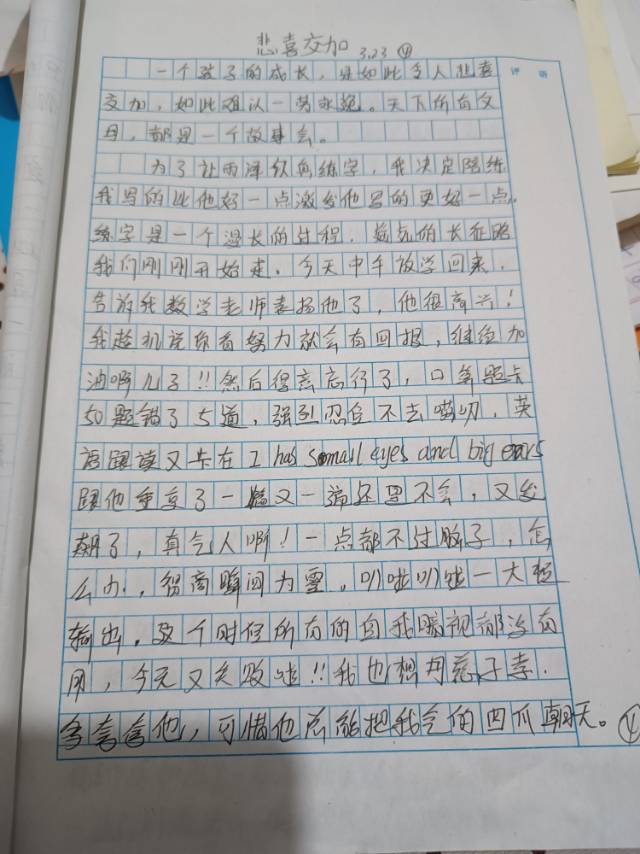 悲喜交加 3.23 ④
评语
一个孩子的成长，是如此令人悲喜
交加，如此难以一劳永逸。天下所有父
母，都是一个故事会。
为了让雨泽纵向练字，我决定陪练
我写的比他好一点激发他写的更好一点。
练字是一个漫长的过程，楷克的长征路
我们刚刚开始走。今天中午放学回来，
告诉我数学老师表扬他了，他很高兴！
我趁机说你看努力就会有回报，继续加
油啊儿子!!然后得意忘行了，口算题卡
50题错了5道，强烈忍住不去唠叨，英
语跟读又卡在I has small eyes and big ears
跟他重复了一遍又一遍还是不会，又发
飙了，真气人啊！一点都不过脑子，怎
么办，智商瞬间为零，叭啦叭啦一大顿
输出，这个时候所有的自我嘱视都没有
用，今天又失败啦!!我也想母慈子孝.
多夸夸他，可惜他总能把我气的四爪朝天。④